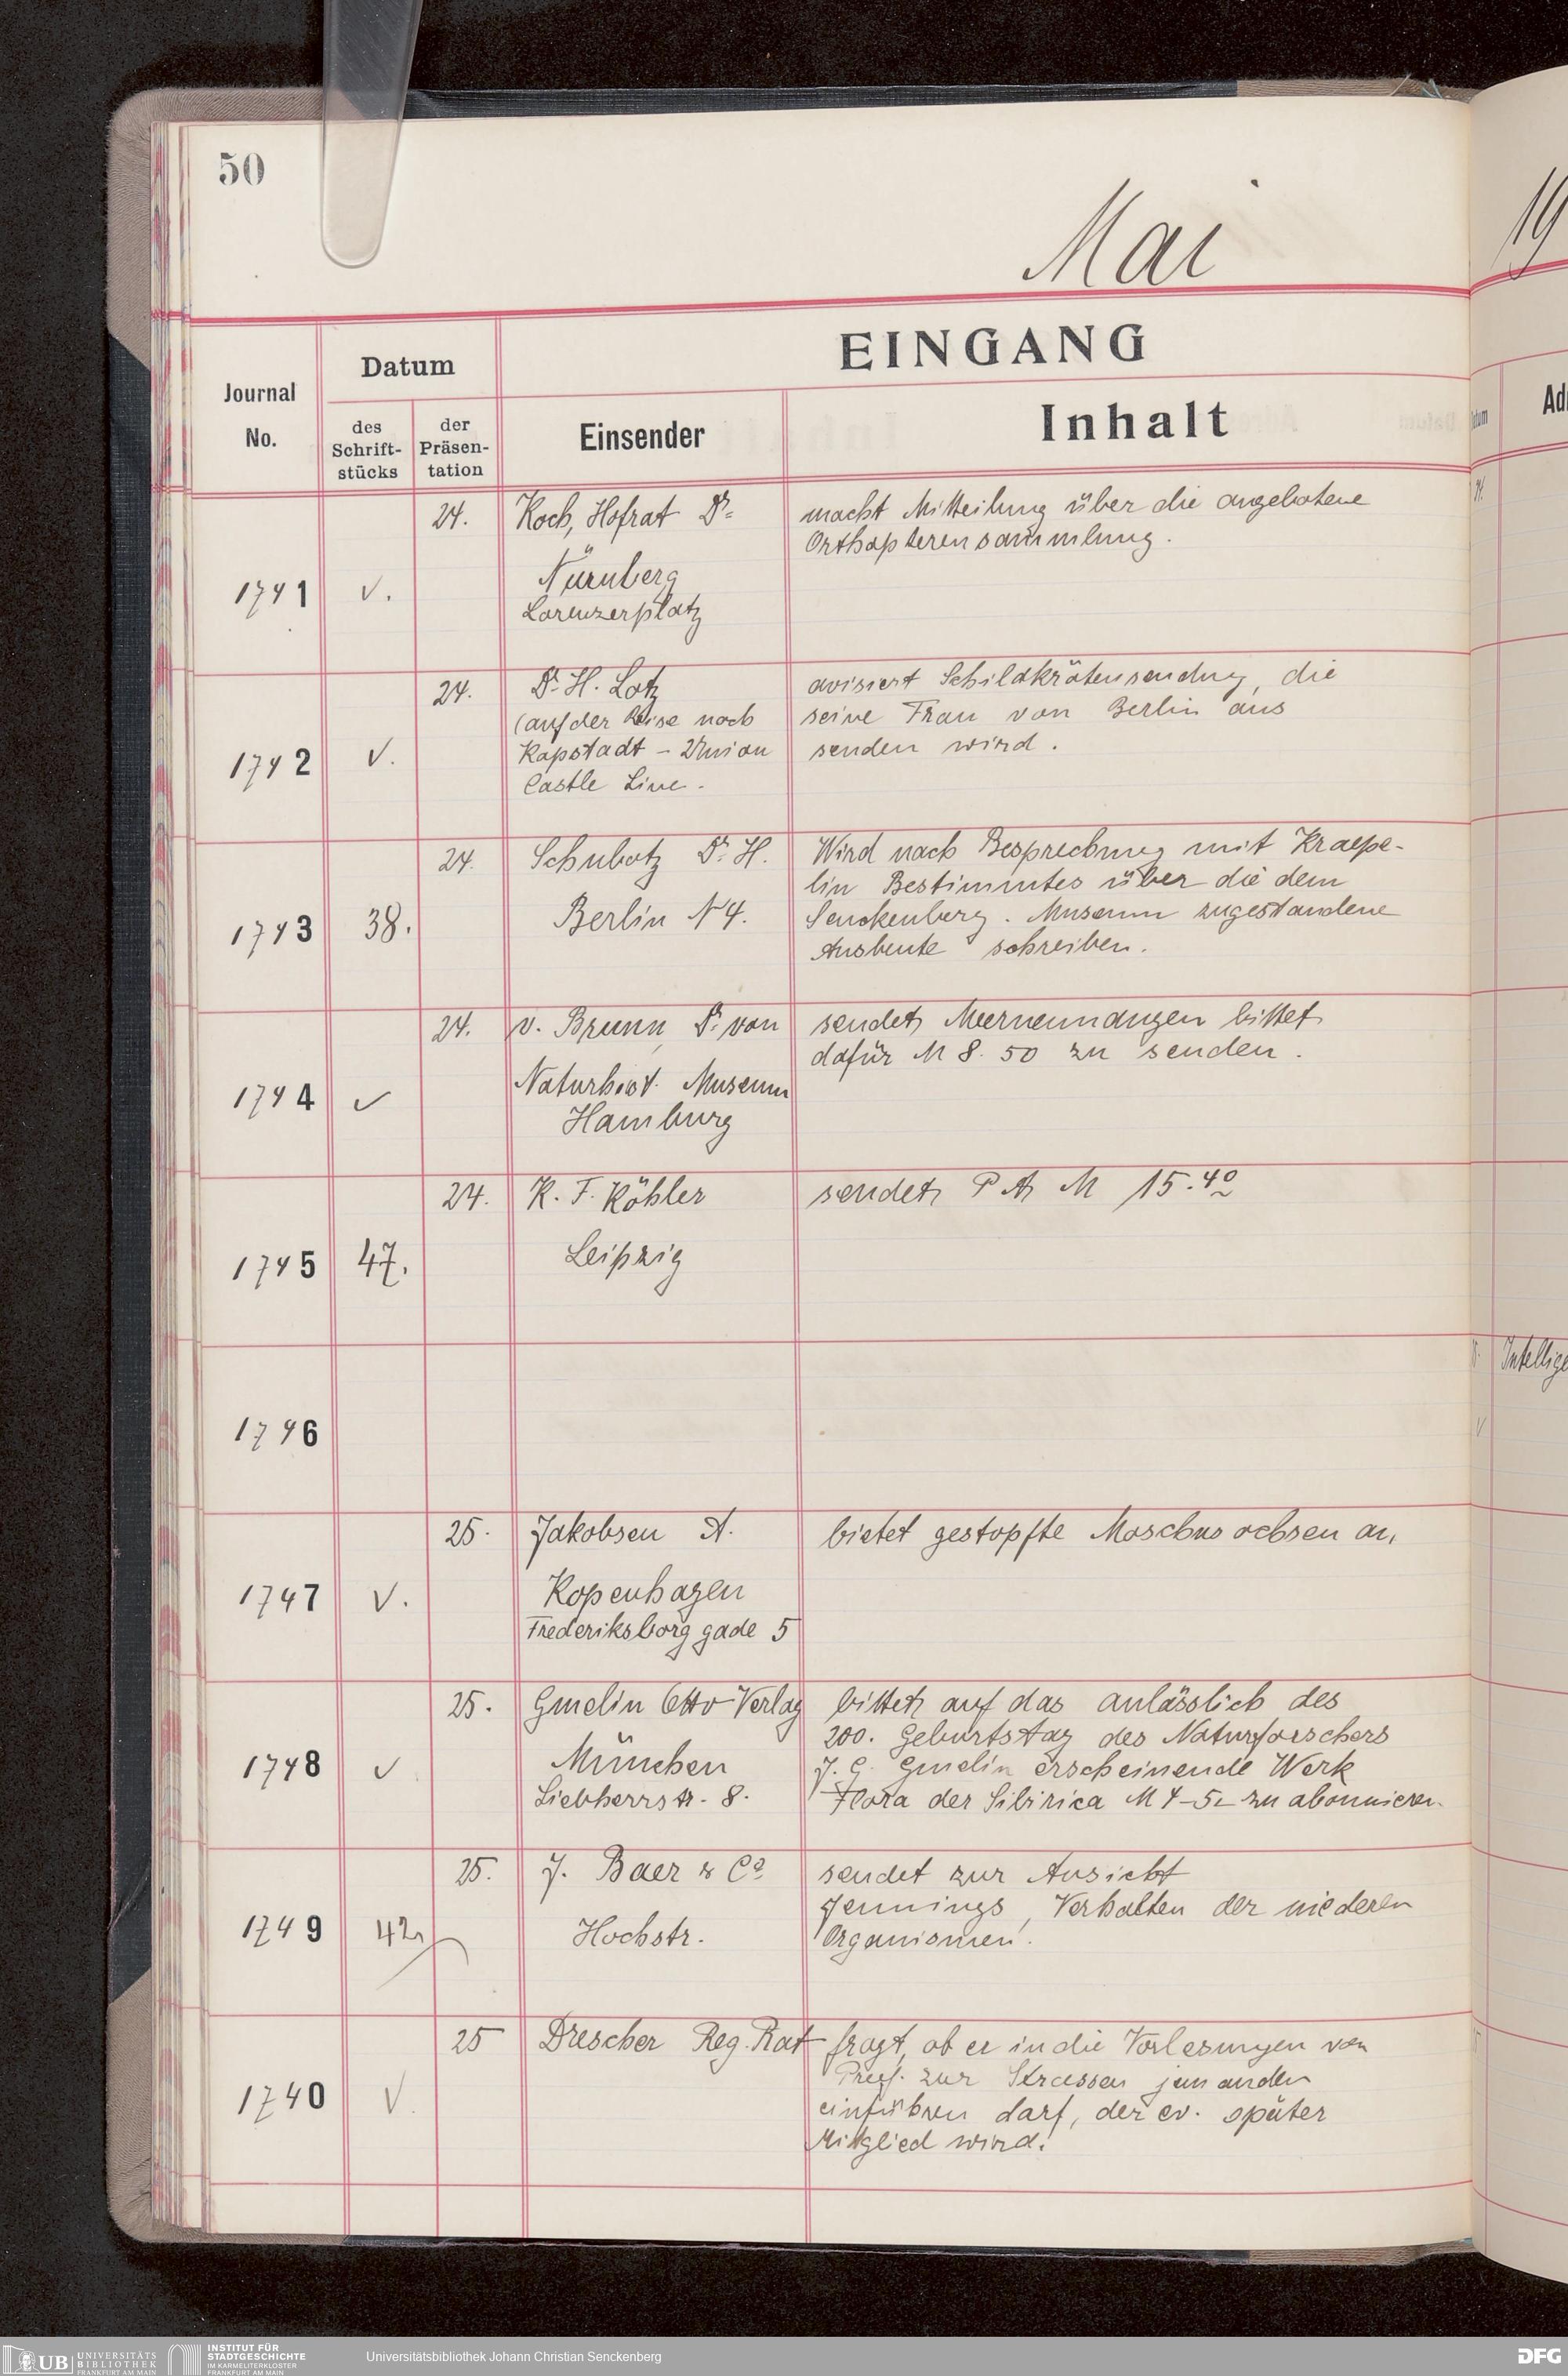 50
Mai
19
EINGANG
Journal
No.
Datum
des
Schrift-
stücks
der
Präsen-
tation
Einsender
Inhalt
Ad
1741 v. 24. Koch, Hofrat Dr.
Nürnberg
Lorenzerplatz
macht Mitteilung über die angebotene
Orthopterensammlung.
1742 v. 24. Dr. H. Lotz
(auf der Reise nach
Kapstadt - Union
Castle Line.
avisiert Schildkrötensendung, die
seine Frau von Berlin aus
senden wird.
1743 38. 24. Schubotz Dr. H.
Berlin N 4.
Wird nach Besprechung mit Kraepe-
lin Bestimmtes über die dem
Senckenberg. Museum zugestandene
Ausbeute schreiben.
1744 v 24. v. Brunn, Dr. von
Naturhist. Museum
Hamburg
sendet bittet
dafür M 8.50 zu senden.
1745 47. 24. K. F. Köhler
Leipzig
sendet P A M 15.40
1746
Intellige
1747 v. 25. Jakobsen A.
Kopenhagen
Frederiksborggade 5
bietet gestopfte Moschusochsen an.
1748 v 25. Gmelin Otto Verlag
München
Liebherrstr. 8.
bittet auf das anlässlich des
200. Geburtstag des Naturforschers
J. G. Gmelin erscheinende Werk
Flora der Sibirica M 4-5.- zu abonnieren.
1749 42 25. J. Baer & Co
Hochstr.
sendet zur Ansicht
Jennings, Verhalten der niederen
Organismen.
1740 V. 25 Drescher Reg. Rat
fragt, ob er in die Vorlesungen von
Prof. zur Strassen jemanden
einführen darf, der ev. später
Mitglied wird.
UB UNIVERSITÄTS
BIBLIOTHEK
FRANKFURT AM MAIN
INSTITUT FÜR
STADTGESCHICHTE
IM KARMELITERKLOSTER
FRANKFURT AM MAIN
Universitätsbibliothek Johann Christian Senckenberg
DFG